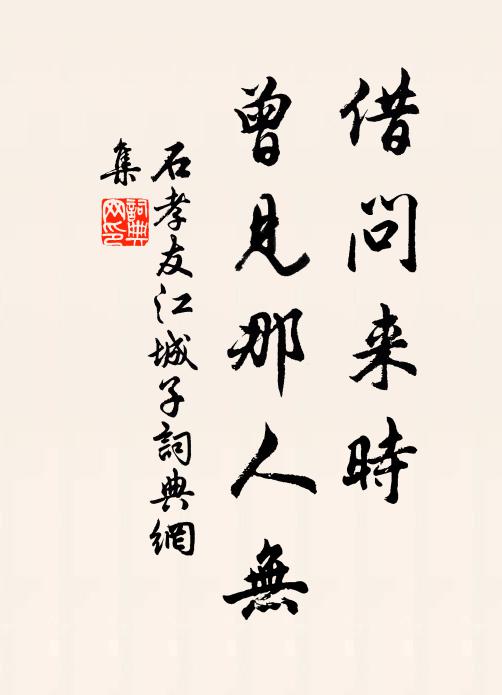 借問来時
曾見那人無
石孝友江城子詞典網
集
詞典
网印